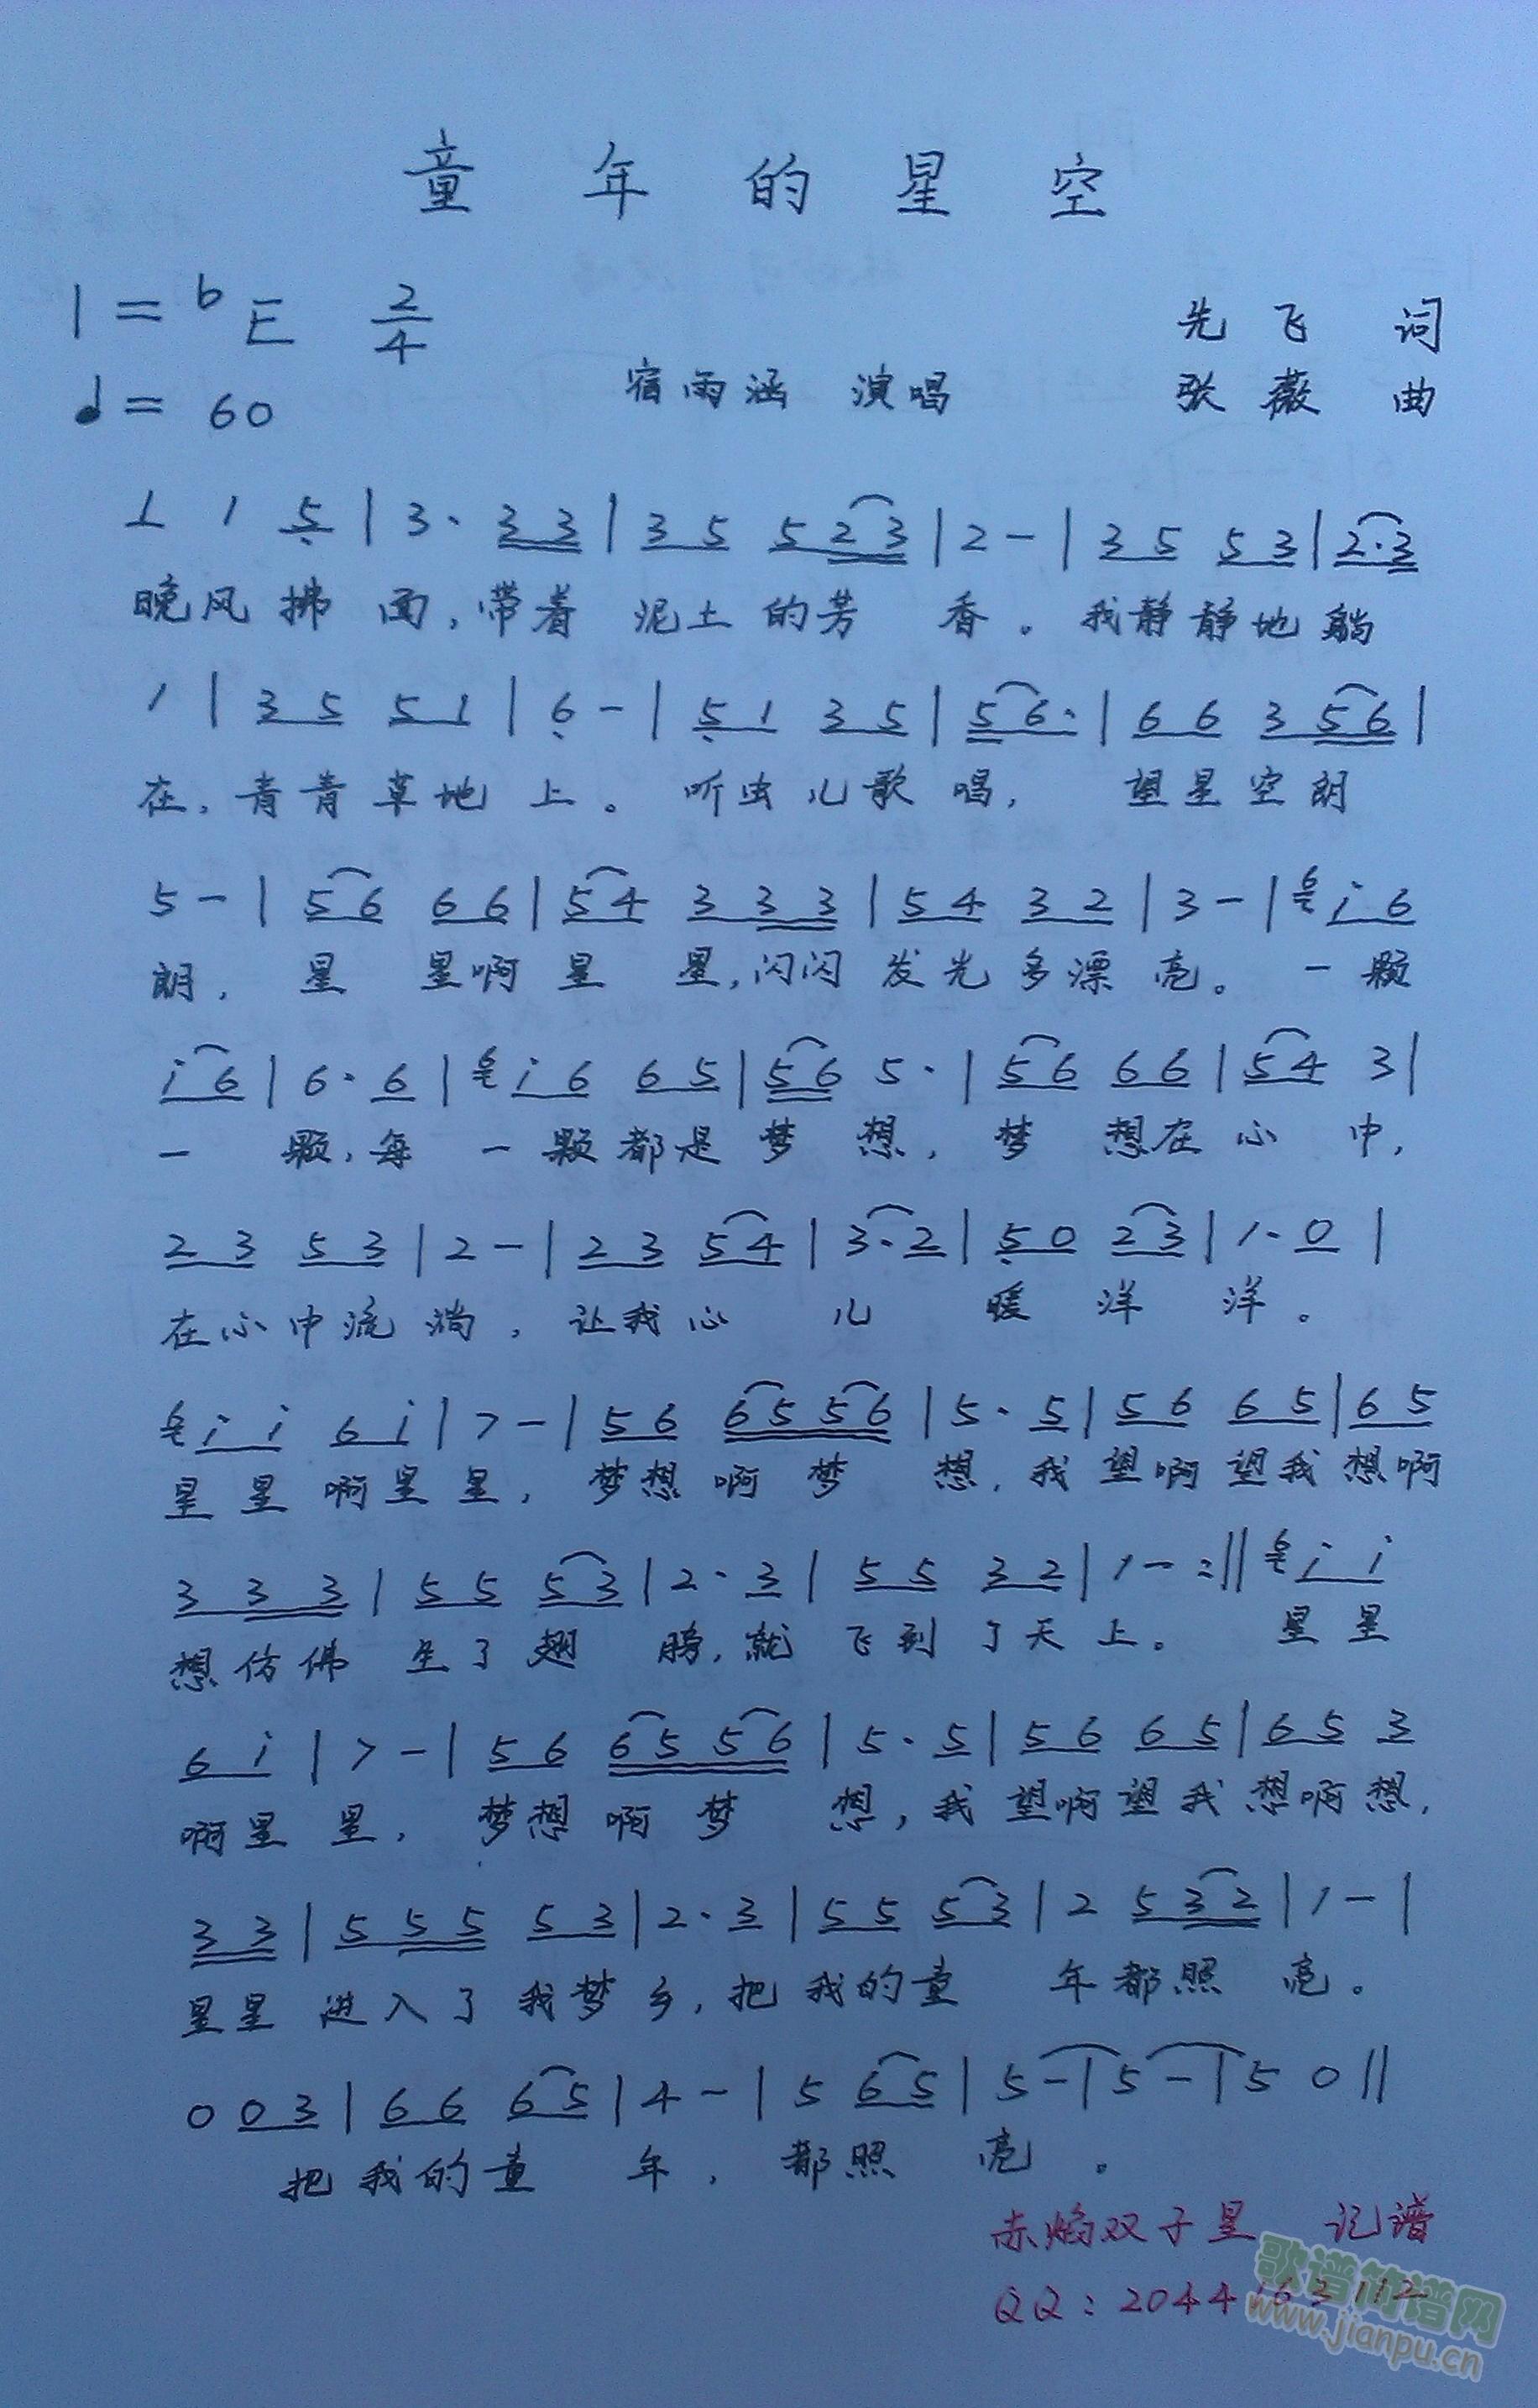 童年的星空
1=bE 2/4
先飞 词
♩=60
宿雨涵 演唱
张薇 曲
1 1 5 | 3· 3 3 | 3 5 5 2 3 | 2 - | 3 5 5 3 | 2·3
晚风拂面,带着泥土的芳香。我静静地躺
1 | 3 5 5 1 | 6 - | 5 1 3 5 | 5 6· | 6 6 3 5 6 |
在,青青草地上。听虫儿歌唱,望星空朗
5 - | 5 6 6 6 | 5 4 3 3 3 | 5 4 3 2 | 3 - | 6 i 6
朗,星星啊星星,闪闪发光多漂亮。一颗
i 6 | 6· 6 | 6 i 6 6 5 | 5 6 5· | 5 6 6 6 | 5 4 3 |
一颗,每一颗都是梦想,梦想在心中,
2 3 5 3 | 2 - | 2 3 5 4 | 3·2 | 5 0 2 3 | 1· 0 |
在心中流淌,让我心儿暖洋洋。
6 i i 6 i | > - | 5 6 6 5 5 6 | 5· 5 | 5 6 6 5 | 6 5
星星啊星星,梦想啊梦想,我望啊望我想啊
3 3 3 | 5 5 5 3 | 2· 3 | 5 5 3 2 | 1 - :|| 6 i i
想仿佛生了翅膀,就飞到了天上。星星
6 i | > - | 5 6 6 5 5 6 | 5· 5 | 5 6 6 5 | 6 5 3
啊星星,梦想啊梦想,我望啊望我想啊想,
3 3 | 5 5 5 5 3 | 2· 3 | 5 5 5 3 | 2 5 3 2 | 1 - |
星星进入了我梦乡,把我的童年都照亮。
0 0 3 | 6 6 6 5 | 4 - | 5 6 5 | 5 - | 5 - | 5 0 ||
把我的童年,都照亮。
赤焰双子星 记谱
QQ:2044163112
歌谱简谱网
www.jianpu.cn